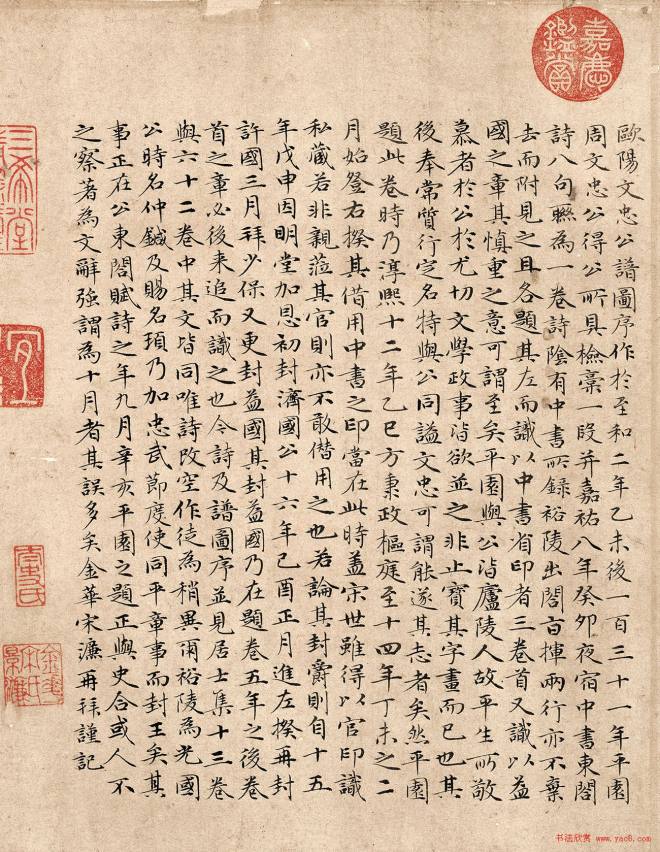 歐陽文忠公譜圖序作於至和二年乙未後一百三十一年平園
周文忠公得公所具檢藁一段并嘉祐八年癸卯夜宿中書東閤
詩八句聯為一卷詩陰有中書所錄裕陵出閤百揮兩行亦不棄
去而附見之且各題其左而識以中書省印者三卷首又識以益
國之章其慎重之意可謂至矣平園與公皆廬陵人故平生所敬
慕者於公於尤切文學政事皆欲並之非止寶其字畫而已也其
後奉常質行定名特與公同謚文忠可謂能遂其志者矣然平園
題此卷時乃淳熙十二年乙巳方秉政樞庭至十四年丁未之二
月始登右揆其借用中書之印當在此時蓋宋世雖得以官印識
私藏若非親蒞其官則亦不敢僭用之也若論其封爵則自十五
年戊申因明堂加恩初封濟國公十六年己酉正月進左揆再封
許國三月拜少保又更封益國其封益國乃在題卷五年之後卷
首之章必後來追而識之也今詩及譜圖序並見居士集十三卷
與六十二卷中其文皆同唯詩改空作徒為稍異爾裕陵為光國
公時名仲鍼及賜名頊乃加忠武節度使同平章事而封王矣其
事正在公東閤賦詩之年九月辛亥平園之題正與史合或人不
之察著為文辭強謂為十月者其誤多矣金華宋濂再拜謹記
嘉慶鑑賞
三希堂
宜
李氏
金華宋氏景濂
书法欣赏 www.yac8.com